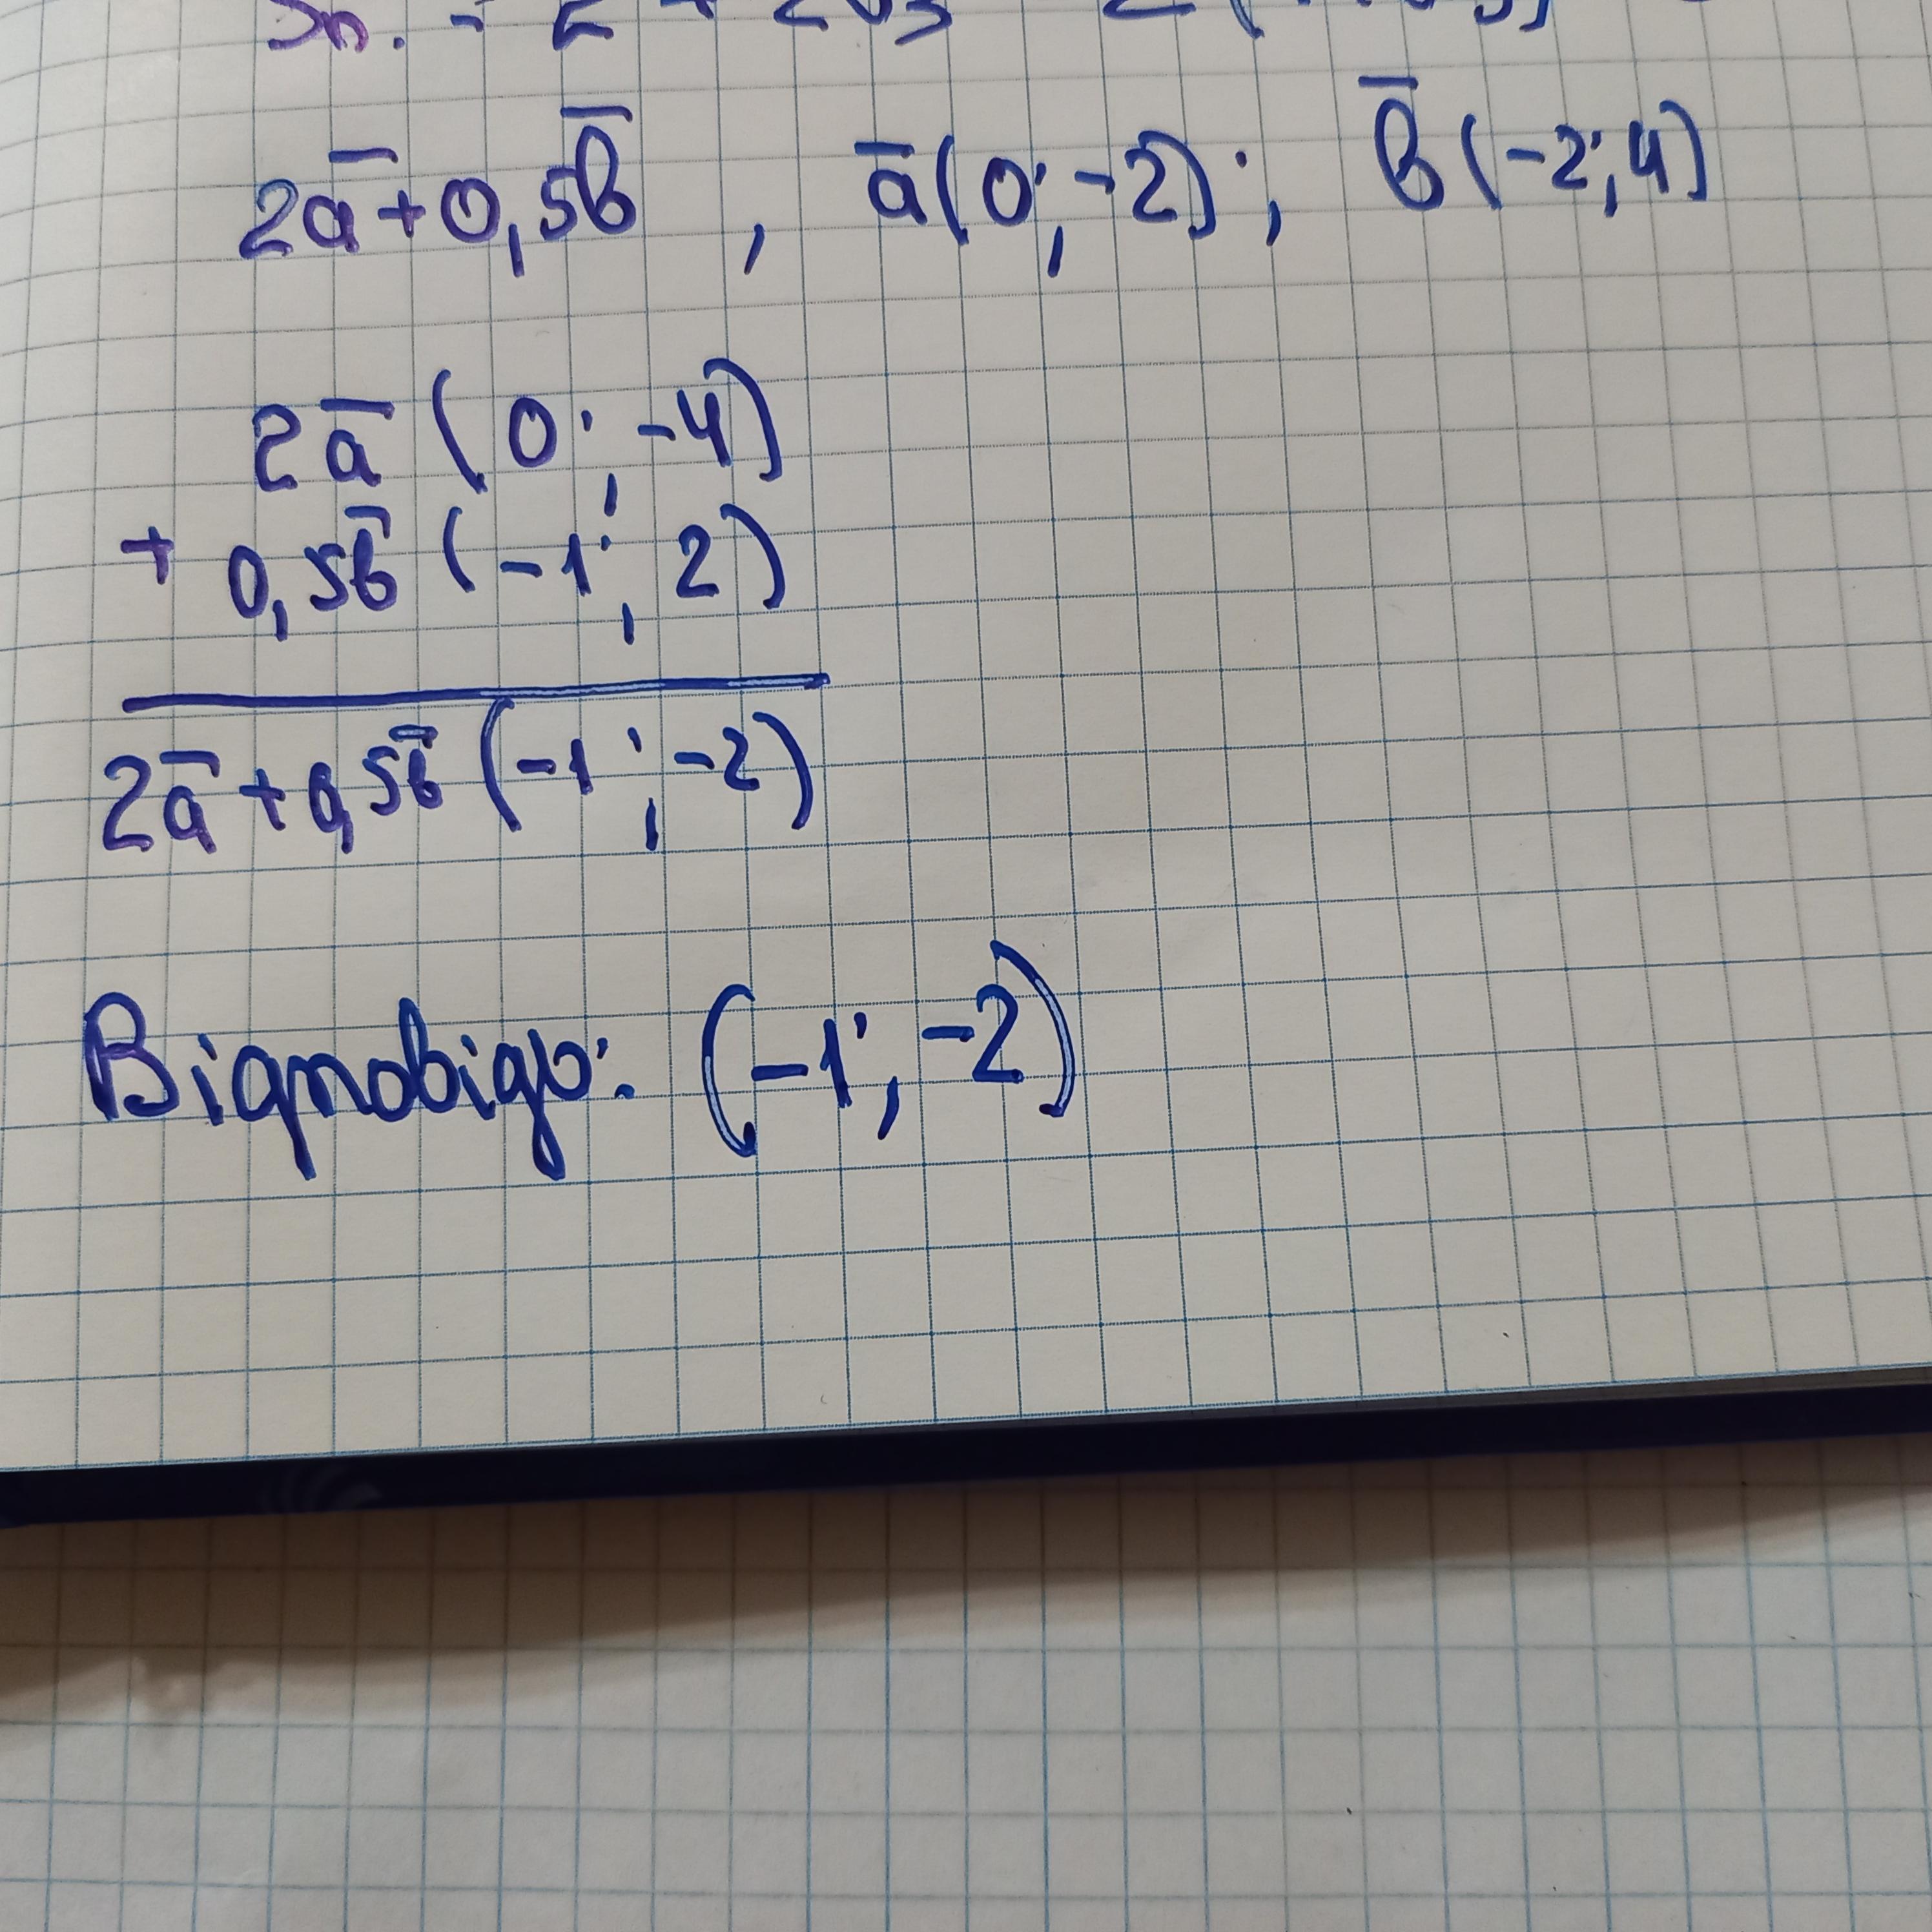 2a̅ + 0,5b̅ , a̅(0; -2); b̅(-2; 4)
2a̅ (0; -4)
+ 0,5b̅ (-1; 2)
2a̅ + 0,5b̅ (-1; -2)
Відповідь: (-1; -2)